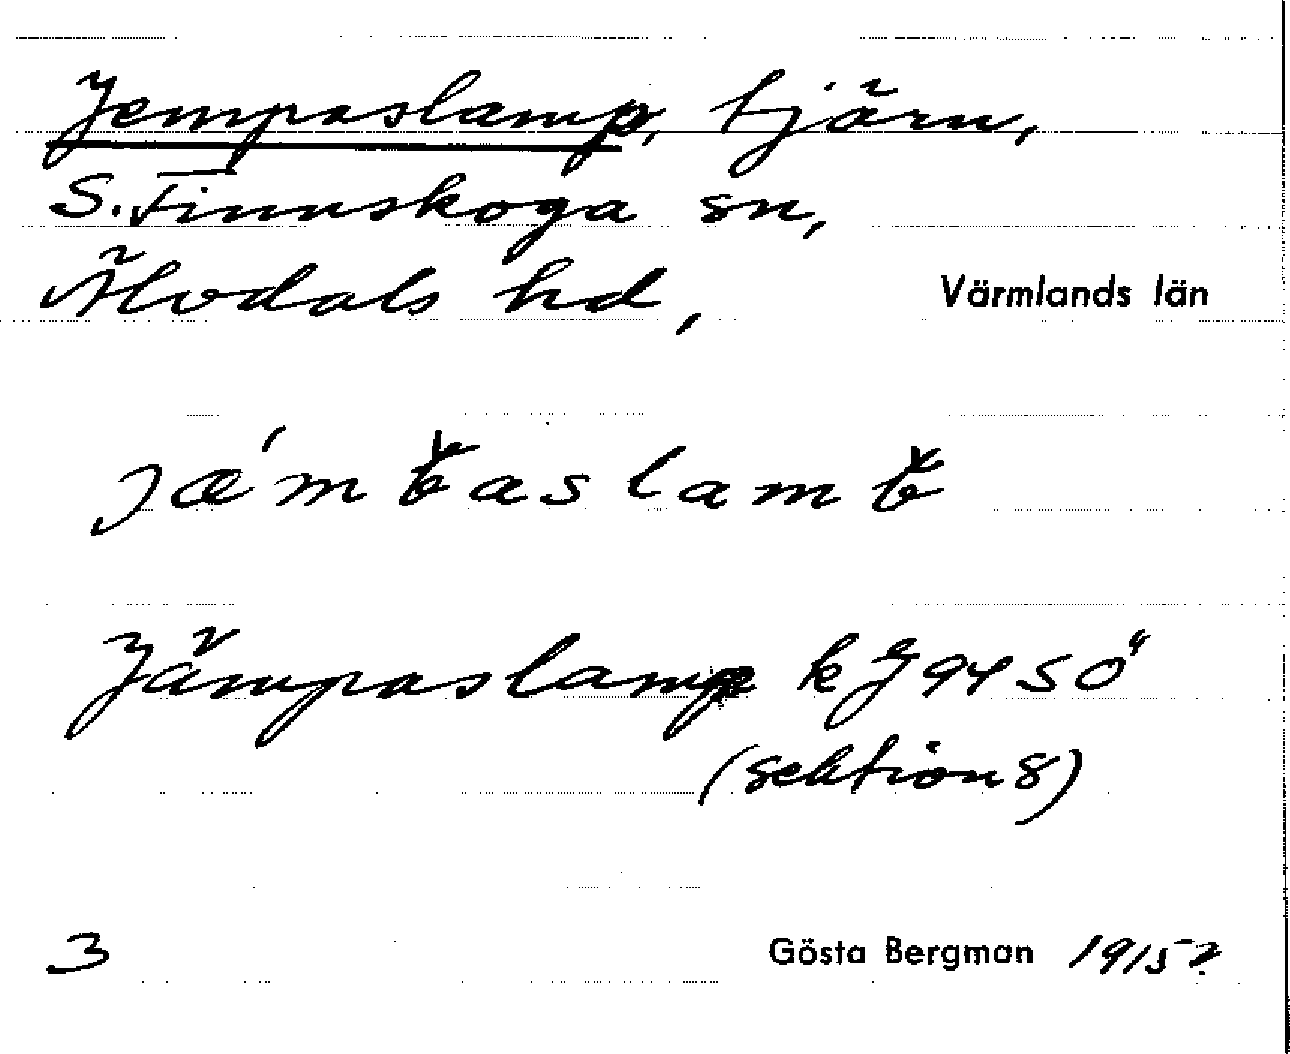 Jempaslamp, tjärn,
S. Finnskoga sn,
Älvdals hd, Värmlands län
Jämpaslamp kJ 94 SÖ
(sektion 8)
3 Gösta Bergman 1915?